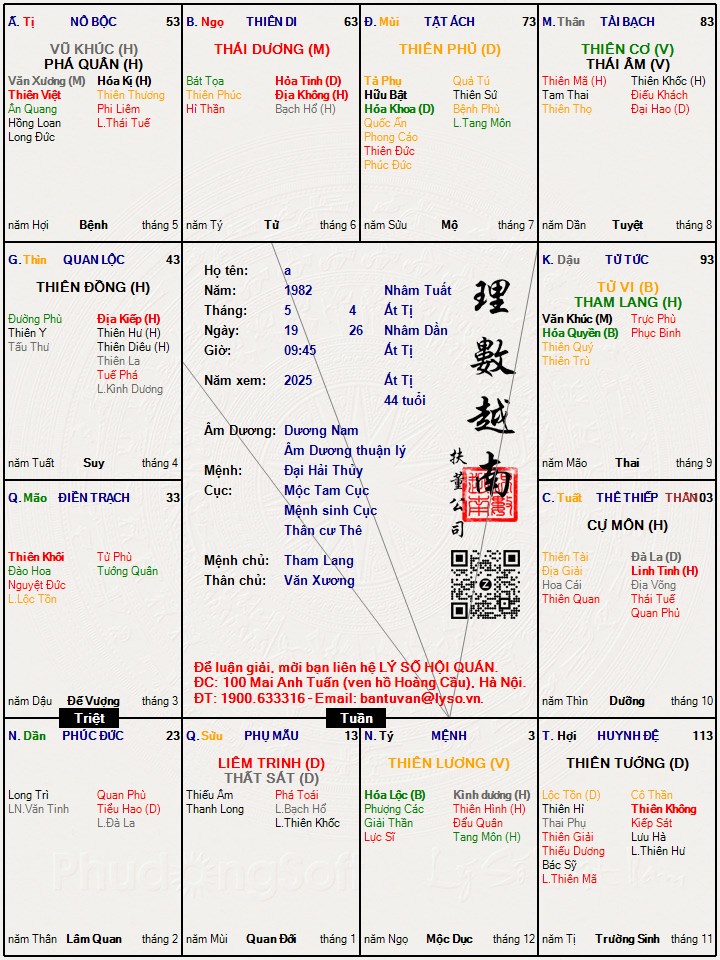 Ã. Tị NÔ BỘC 53
VŨ KHÚC (H)
PHÁ QUÂN (H)
Văn Xương (M) Hóa Kị (H)
Thiên Việt Thiên Thương
Ân Quang Phi Liêm
Hồng Loan L.Thái Tuế
Long Đức
năm Hợi Bệnh tháng 5
B. Ngọ THIÊN DI 63
THÁI DƯƠNG (M)
Bát Tọa Hỏa Tinh (D)
Thiên Phúc Địa Không (H)
Hỉ Thần Bạch Hổ (H)
năm Tý Tử tháng 6
Đ. Mùi TẬT ÁCH 73
THIÊN PHỦ (D)
Tả Phụ Quả Tú
Hữu Bật Thiên Sứ
Hóa Khoa (D) Bệnh Phù
Quốc Ấn L.Tang Môn
Phong Cáo
Thiên Đức
Phúc Đức
năm Sửu Mộ tháng 7
M. Thân TÀI BẠCH 83
THIÊN CƠ (V)
THÁI ÂM (V)
Thiên Mã (H) Thiên Khốc (H)
Tam Thai Điếu Khách
Thiên Thọ Đại Hao (D)
năm Dần Tuyệt tháng 8
G. Thìn QUAN LỘC 43
THIÊN ĐỒNG (H)
Đường Phù Địa Kiếp (H)
Thiên Y Thiên Hư (H)
Tấu Thư Thiên Diêu (H)
Thiên La
Tuế Phá
L.Kình Dương
năm Tuất Suy tháng 4
Họ tên: a
Năm: 1982 Nhâm Tuất
Tháng: 5 4 Ất Tị
Ngày: 19 26 Nhâm Dần
Giờ: 09:45 Ất Tị
Năm xem: 2025 Ất Tị
44 tuổi
Âm Dương: Dương Nam
Âm Dương thuận lý
Mệnh: Đại Hải Thủy
Cục: Mộc Tam Cục
Mệnh sinh Cục
Thân cư Thê
Mệnh chủ: Tham Lang
Thân chủ: Văn Xương
理數越南
扶董公司
Z
Để luận giải, mời bạn liên hệ LÝ SỐ HỘI QUÁN.
ĐC: 100 Mai Anh Tuấn (ven hồ Hoàng Cầu), Hà Nội.
ĐT: 1900.633316 - Email: bantuvan@lyso.vn.
K. Dậu TỬ TỨC 93
TỬ VI (B)
THAM LANG (H)
Văn Khúc (M) Trực Phù
Hóa Quyền (B) Phục Binh
Thiên Quý
Thiên Trù
năm Mão Thai tháng 9
Q. Mão ĐIỀN TRẠCH 33
Thiên Khôi Tử Phù
Đào Hoa Tướng Quân
Nguyệt Đức
L.Lộc Tồn
năm Dậu Đế Vượng tháng 3
C. Tuất THÊ THIẾP THÂN 103
CỰ MÔN (H)
Thiên Tài Đà La (D)
Địa Giải Linh Tinh (H)
Hoa Cái Địa Võng
Thiên Quan Thái Tuế
Quan Phủ
năm Thìn Dưỡng tháng 10
Triệt
Tuần
N. Dần PHÚC ĐỨC 23
Long Trì Quan Phù
LN.Văn Tinh Tiểu Hao (D)
L.Đà La
năm Thân Lâm Quan tháng 2
Q. Sửu PHỤ MẪU 13
LIÊM TRINH (D)
THẤT SÁT (D)
Thiếu Âm Phá Toái
Thanh Long L.Bạch Hổ
L.Thiên Khốc
năm Mùi Quan Đới tháng 1
N. Tý MỆNH 3
THIÊN LƯƠNG (V)
Hóa Lộc (B) Kình dương (H)
Phượng Các Thiên Hình (H)
Giải Thần Đẩu Quân
Lực Sĩ Tang Môn (H)
năm Ngọ Mộc Dục tháng 12
T. Hợi HUYNH ĐỆ 113
THIÊN TƯỚNG (D)
Lộc Tồn (D) Cô Thần
Thiên Hỉ Thiên Không
Thai Phụ Kiếp Sát
Thiên Giải Lưu Hà
Thiếu Dương L.Thiên Hư
Bác Sỹ
L.Thiên Mã
năm Tị Trường Sinh tháng 11